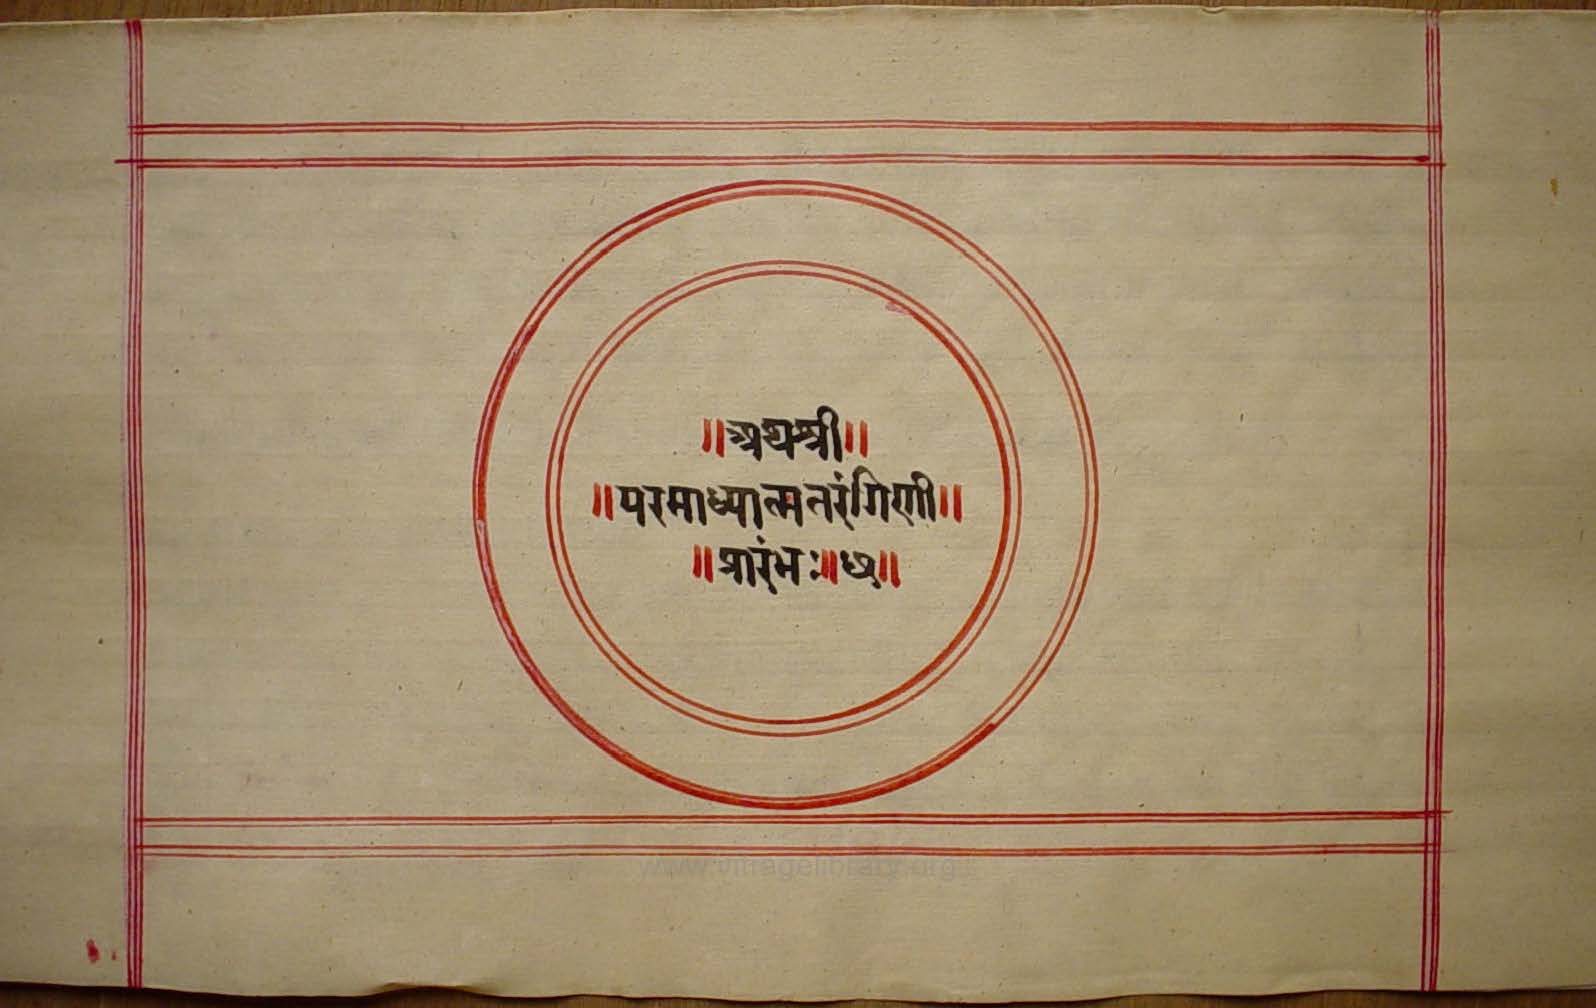 ॥अथश्री॥
॥परमाध्यात्मतरंगिणी॥
॥प्रारंभः॥छ॥
www.vihagelibrary.org